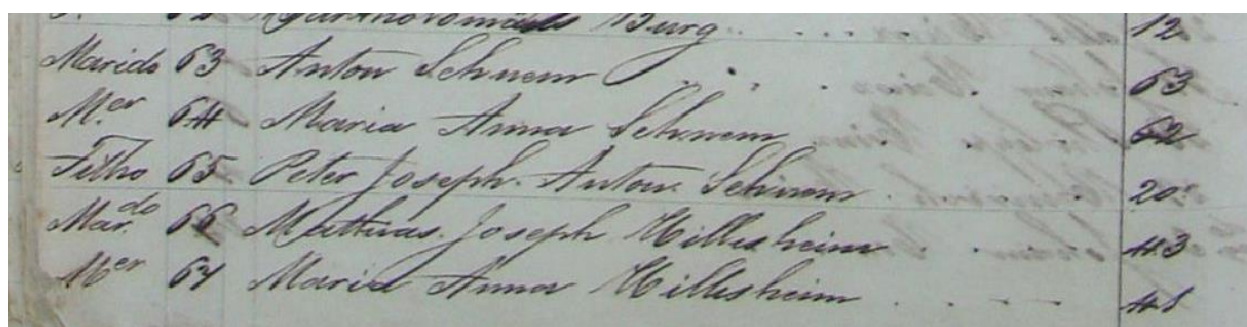 Burg 12
Marido 63 Anton Schnem 63
M.er 64 Maria Anna Schnem 62
Filho 65 Peter Joseph Anton Schnem 20
Mar.do 66 Mathias Joseph Hillesheim 43
M.er 67 Maria Anna Hillesheim